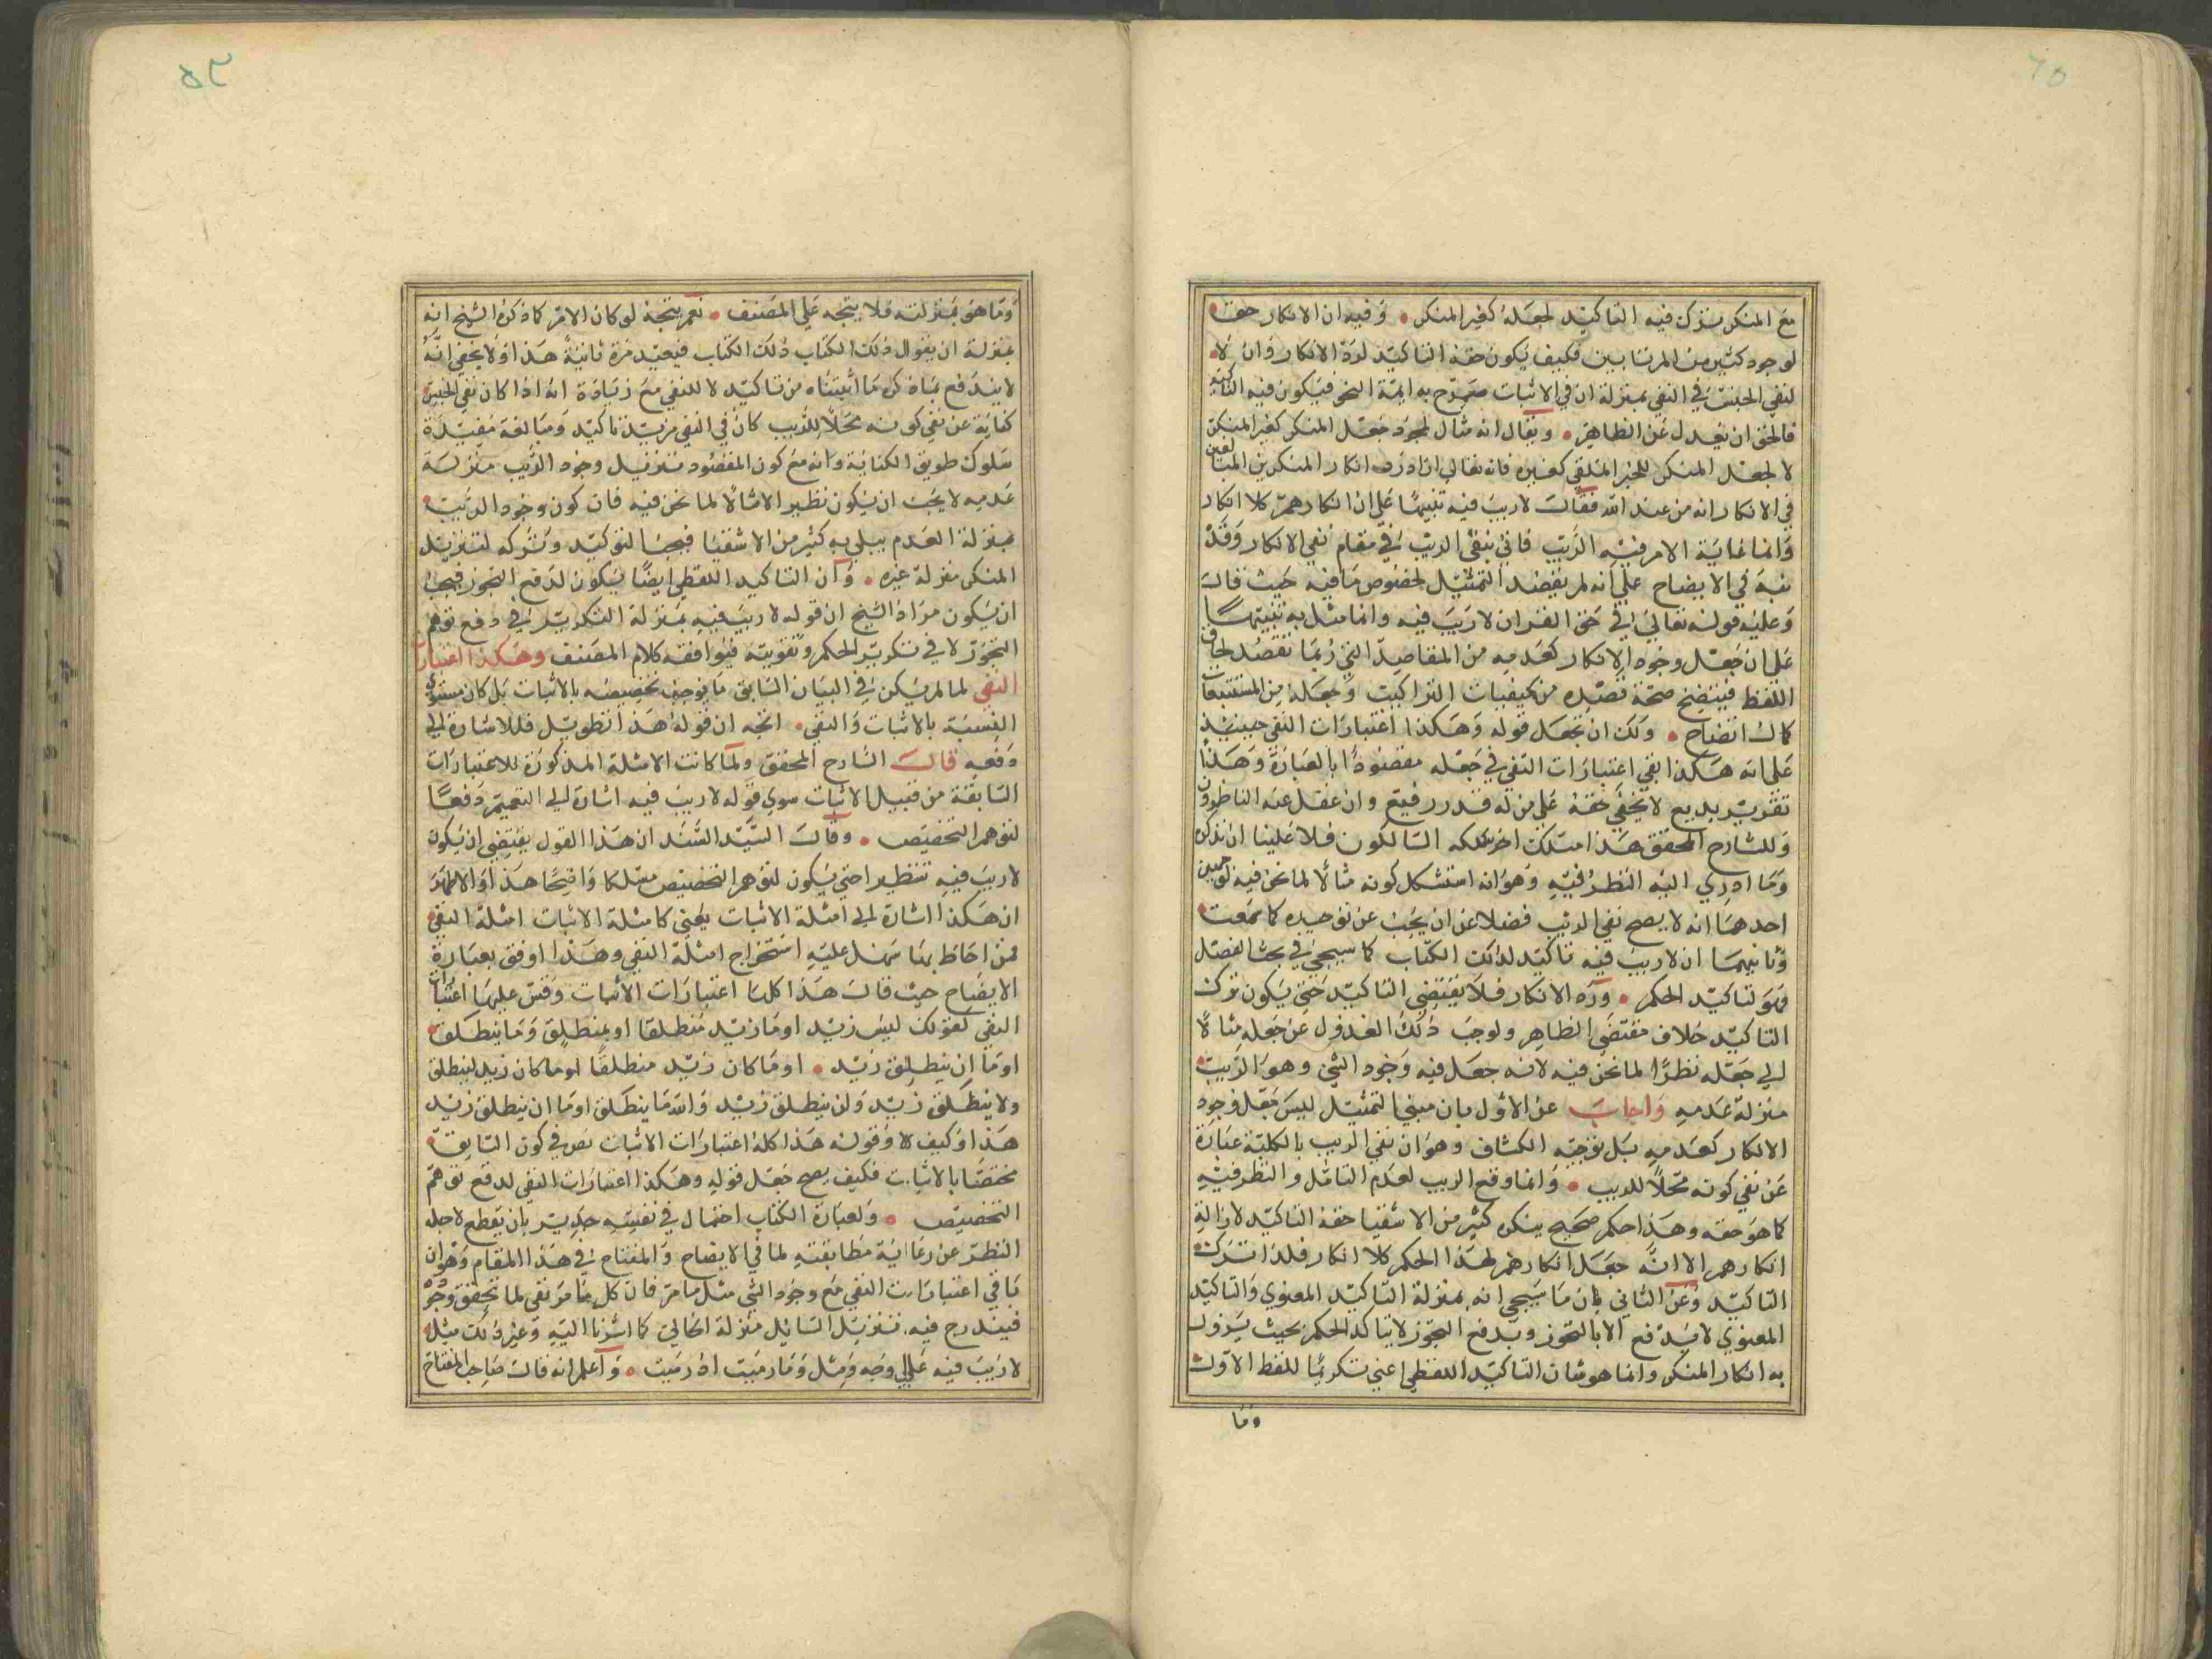 مع المنكر بترك فيه التاكيد لجعله كغير المنكر • وفيه ان الانكار حق
لوجود كثير من المرتابين فكيف يكون حقه التاكيد لرد الانكار وان لا
لنفي الجنس في النفي بمنزلة ان في الاثبات صرح به ايمة النحو فيكون فيه التاكيد
فالحق ان يعدل عن الظاهر • ويقال انه مثال لمجرد جعل المنكر كغير المنكر
لا لجعل المنكر للخبر الملقي كغيره فانه تعالي اذا رد انكار المنكرين المبالغين
في الانكار انه من عند الله فقال لا ريب فيه تنبيها علي ان انكارهم كلا انكار
وانما غاية الامر فيه الريب فاني بنفي الريب في مقام نفي الانكار وقد
نبه في الايضاح علي انه لم يقصد التمثيل لخصوص ما فيه حيث قال
وعليه قوله تعالي في حق القران لا ريب فيه وانما مثل به تنبيها
علي ان جعل وجود الانكار كعدمه من المقاصد التي ربما تقصد لحاق
اللفظ فيتضح صحة قصده من كيفيات التراكيب وجعله من المستتبعات
كمال اتضاح • ولك ان تجعل قوله وهكذا اعتبارات النفي حينئذ
علي انه هكذا بقي اعتبارات النفي في جعله مقصودا بالعبارة وهذا
تقرير بديع لا يخفي حقه علي من له قدر رفيع وان غفل عنه الناظرون
وللشارح المحقق هذا مسلك اخر سلكه السالكون فلا علينا ان نذكره
وما ادري اليه النظر فيه وهو انه استشكل كونه مثالا لما نحن فيه لوجهين
احدهما انه لا يصح نفي الريب فضلا عن ان يجب عن توحيده كما سمعت
وثانيهما ان لا ريب فيه تاكيد لذلك الكتاب كما سيجي في بحث الفصل
فهو لتاكيد الحكم • ورد الانكار فلا يقتضي التاكيد حتي يكون ترك
التاكيد خلاف مقتضي الظاهر ولوجب ذلك العدول عن جعله مثالا
الي جعله نظرا لما نحن فيه لانه جعل فيه وجود الشي وهو الريب
منزلة عدمه واجاب عن الاول بان مبني التمثيل ليس جعل وجود
الانكار كعدمه بل توجيه الكشاف وهو ان نفي الريب بالكلية عبارة
عن نفي كونه محلا للريب • وانما وقع الريب لعدم التامل والنظر فيه
كما هو حقه وهذا حكم صحيح ينكره كثير من الاشقيا حقه التاكيد لازالة
انكارهم الا انه جعل انكارهم لهذا الحكم كلا انكار فلذا ترك
التاكيد وعن الثاني بان ما سيجي انه بمنزلة التاكيد المعنوي والتاكيد
المعنوي لا يدفع الا بالتجوز وبدفع التجوز لا يتاكد الحكم بحيث يزول
به انكار المنكر وانما هو شان التاكيد اللفظي اعني تكريرا للفظ الاول
وما
وما هو بمنزلته فلا يتجه علي المصنف • نعم يتجه لو كان الامر كما ذكره الشيخ انه
بمنزلة ان يقول ذلك الكتاب ذلك الكتاب فيعيد مرة ثانية هذا ولا يخفي انه
لا يندفع بما ذكره ما اثبتناه من تاكيد لا للنفي مع زيادة انه اذا كان نفي الجنس
كناية عن نفي كونه محلا للريب كان في النفي مزيد تاكيد ومبالغة مفيدة
سلوك طريق الكناية وانه مع كون المقصود تنزيل وجود الريب منزلة
عدمه لا يجب ان يكون نظيرا لا مثالا لما نحن فيه فان كون وجود الريب
بمنزلة العدم يبلي به كثير من الاشقيا فيجب التوكيد ونتركه لتنزيل
المنكر منزلة غيره • وان التاكيد اللفظي ايضا يكون لدفع التجوز فيجب
ان يكون مراد الشيخ ان قوله لا ريب فيه بمنزلة التكرير في دفع توهم
التجوز لا في تكرير الحكم وتقويته فيوافقه كلام المصنف وهكذا اعتبارات
النفي لما لم يكن في البيان السابق ما يوجب تخصيصه بالاثبات بل كان مستوي
النسبة بالاثبات والنفي • اتجه ان قوله هذا تطويل فللاشارة الي
دفعه قال الشارح المحقق ولما كانت الامثلة المذكورة للاعتبارات
السابقة من قبيل الاثبات سوي قوله لا ريب فيه اشارة الي التعميم دفعا
لتوهم التخصيص • وقال السيد السند ان هذا القول يقتضي ان يكون
لا ريب فيه تنظيرا حتي يكون لتوهم التخصيص مسلكا واضحا هذا والاظهر
ان هكذا اشارة الي امثلة الاثبات يعني كامثلة الاثبات امثلة النفي
فمن احاط بها سهل عليه استخراج امثلة النفي وهذا اوفق بعبارة
الايضاح حيث قال هذا كله اعتبارات الاثبات وقس عليها اعتبارات
النفي كقولك ليس زيد او ما زيد منطلقا او بمنطلق وما ينطلق
او ما ان ينطلق زيد • او ما كان زيد منطلقا او ما كان زيد لينطلق
ولا ينطلق زيد ولن ينطلق زيد والله ما ينطلق او ما ان ينطلق زيد
هذا وكيف لا وقوله هذا كله اعتبارات الاثبات نص في كون السابق
مختصا بالاثبات فكيف يصح جعل قوله وهكذا اعتبارات النفي لدفع توهم
التخصيص • ولعبارة الكتاب احتمال في نفسه جدير بان يقطع لاجله
النظر عن رعاية مطابقته لما في الايضاح والمفتاح في هذا المقام وهو ان
باقي اعتبارات النفي مع وجود الشي مثل ما مر فان كل ما مر نفي لما تحقق وجوده
فيندرج فيه تنزيل السايل منزلة الخالي كما اشرنا اليه وغير ذلك مثل
لا ريب فيه علي وجه ومثل وما رميت اذ رميت • واعلم انه قال صاحب المفتاح